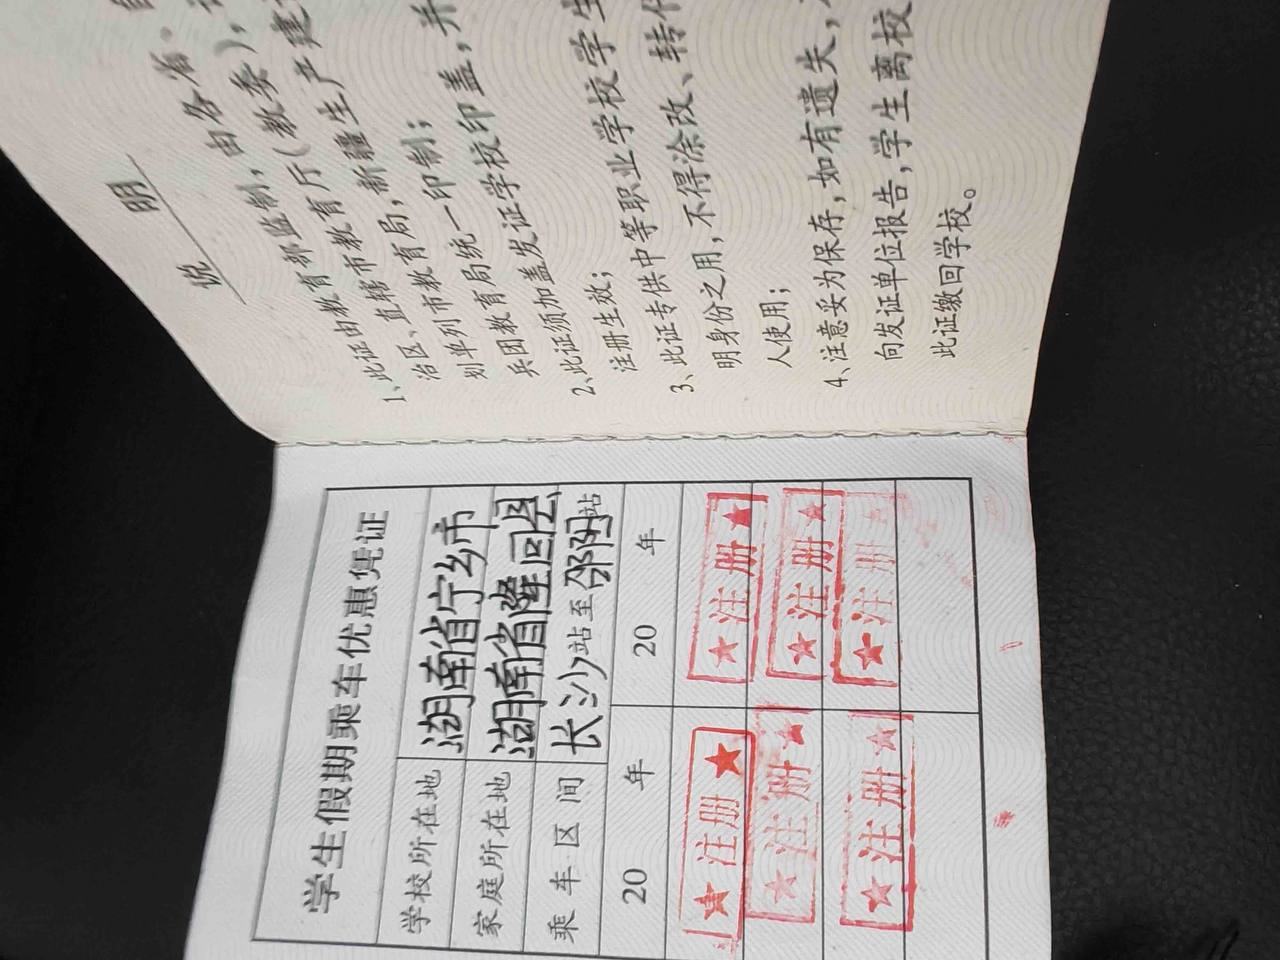 学生假期乘车优惠凭证
学校所在地 湖南省宁乡市
家庭所在地 湖南省隆回县
乘车区间 长沙站至邵阳站
20 年 20 年
★注册★ ★注册★
★注册★ ★注册★
★注册★ ★注册★
说 明
1、此证由教育部监制,由各省、自
治区、直辖市教育厅(教委),
划单列市教育局,新疆生产建
兵团教育局统一印制;
2、此证须加盖发证学校印盖,并
注册生效;
3、此证专供中等职业学校学生
明身份之用,不得涂改、转
人使用;
4、注意妥为保存,如有遗失,
向发证单位报告,学生离校
此证缴回学校。